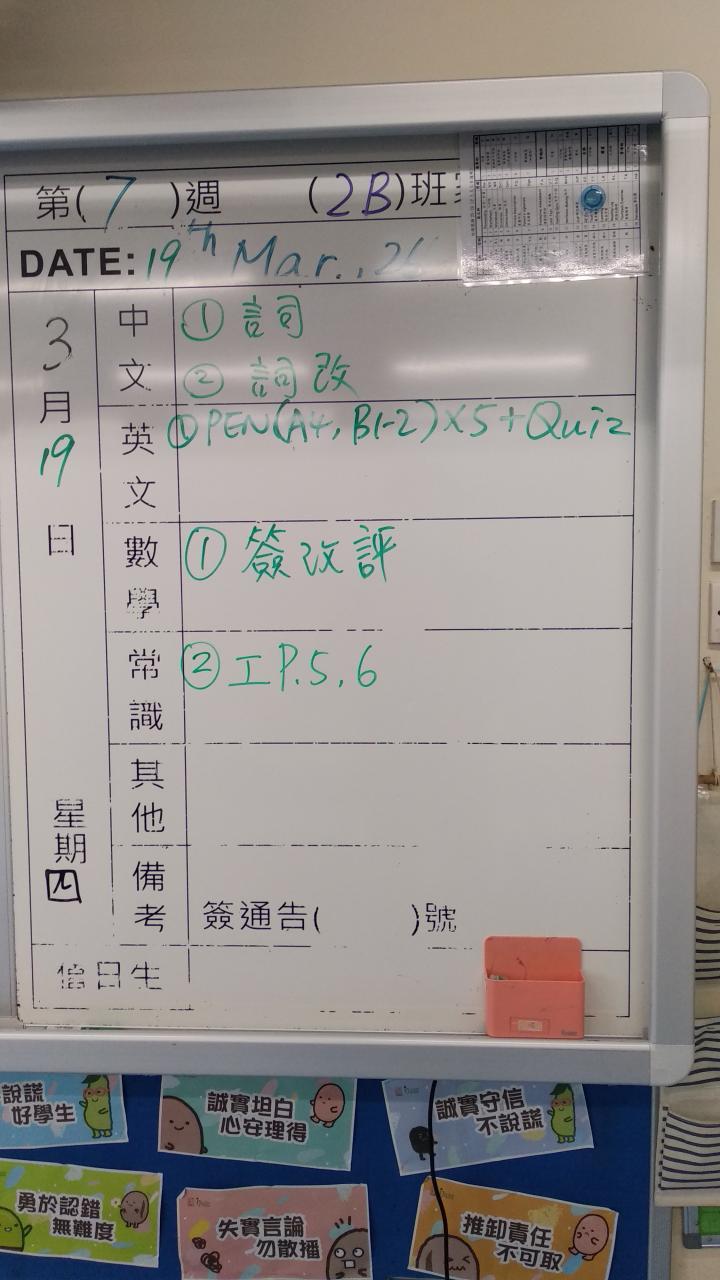 第( 7 )週 (2B)班
DATE: 19th Mar., 26
3月19日
星期四
中文
① 詞
② 詞改
英文
① PEN(A4, B1-2)×5+Quiz
數學
① 簽改評
常識
② 工P.5,6
其他
備考
簽通告( )號
值日生
說謊
好學生
誠實坦白
心安理得
誠實守信
不說謊
勇於認錯
無難度
失實言論
勿散播
推卸責任
不可取